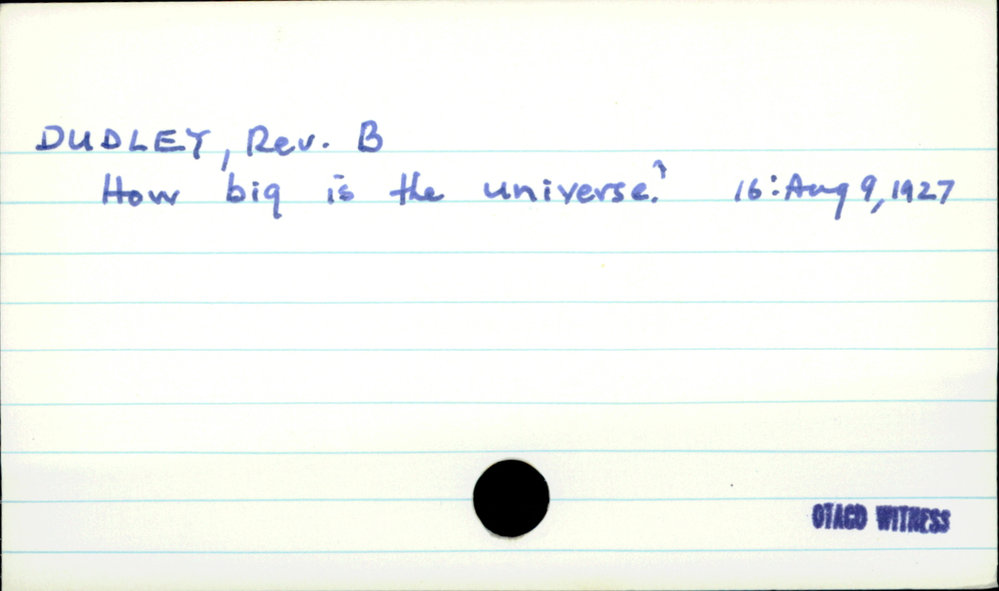 DUDLEY, Rev. B
How big is the universe? 16: Aug 9, 1927
OTAGO WITNESS